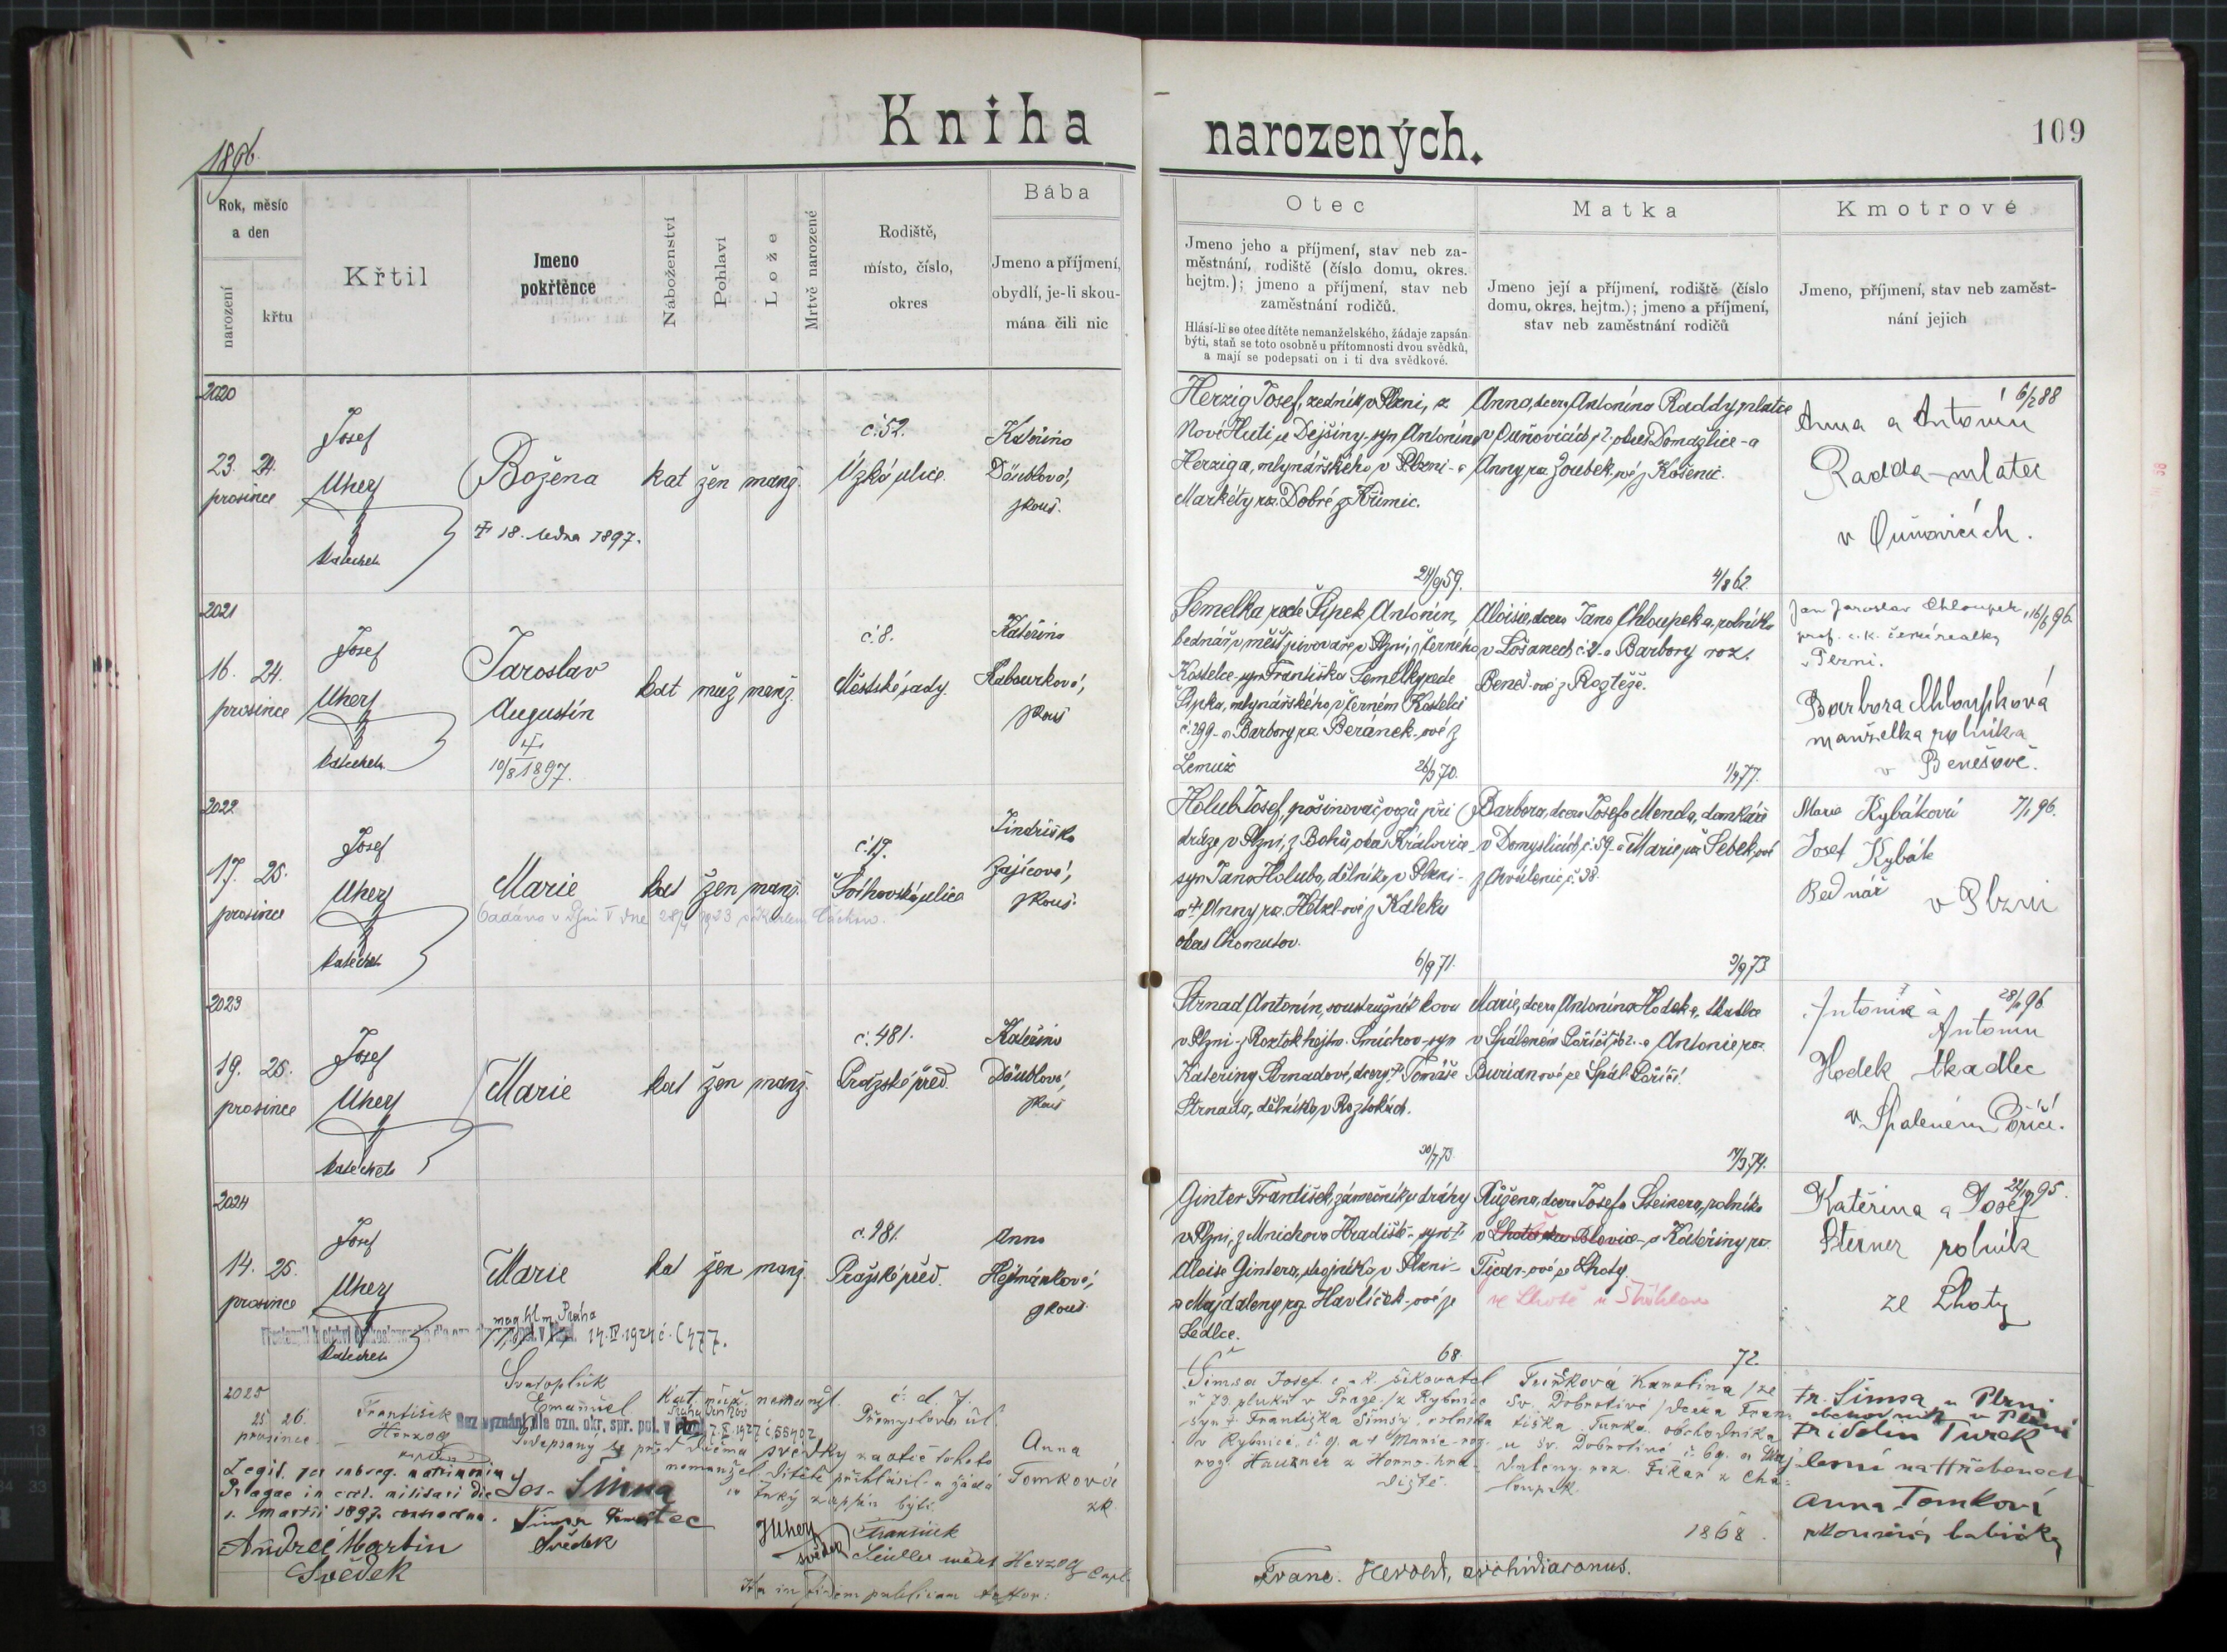 Kniha narozených.
109
1896.
Rok, měsíc
a den
narození
křtu
Křtil
Jmeno
pokřtěnce
Náboženství
Pohlaví
Lože
Mrtvě narozené
Rodiště,
místo, číslo,
okres
Bába
Jmeno a příjmení,
obydlí, je-li skou-
mána čili nic
Otec
Jmeno jeho a příjmení, stav neb za-
městnání, rodiště (číslo domu, okres.
hejtm.); jmeno a příjmení, stav neb
zaměstnání rodičů.
Hlásí-li se otec dítěte nemanželského, žádaje zapsán
býti, staň se toto osobně u přítomnosti dvou svědků,
a mají se podepsati on i ti dva svědkové.
Matka
Jmeno její a příjmení, rodiště (číslo
domu, okres. hejtm.); jmeno a příjmení,
stav neb zaměstnání rodičů
Kmotrové
Jmeno, příjmení, stav neb zaměst-
nání jejich
2020
23. 24.
prosince
Josef
Uhery
katechet
Božena
18. ledna 1897.
kat žen manž.
č. 52.
Úzká ulice.
Kateřina
Däublová,
zkouš.
Herzig Josef, zedník v Plzni, z
Nové Huti u Dejšiny, syn Antonína
Herziga, mlynářského v Plzni - a
Markéty roz. Dobré z Křimic.
24/9 59.
Anna, dcera Antonína Raddy, mlatce
v Ouňovicích, okres Domažlice - a
Anny roz. Zoubek-ové z Košenic.
4/8 62.
6/2 88
Anna a Antonín
Radda - mlatec
v Ouňovicích.
2021
16. 24.
prosince
Josef
Uhery
katechet
Jaroslav
Augustin
10/8 1897.
kat muž manž.
č. 8.
Městské sady.
Kateřina
Kabourková,
zkouš
Semelka recte Šípek Antonín,
bednář v měšť. pivovaře v Plzni, z Černého
Kostelce, syn Františka Semelky recte
Šípka, mlynářského v Černém Kostelci
č. 299 - a Barbory roz. Beránek-ové z
Lemuz
26/3 70.
Aloisie, dcera Jana Chloupeka, rolníka
v Lošanech č. 2 - a Barbory roz.
Beneš-ové z Roztěže.
1/3 77.
Jan Jaroslav Chloupek, 16/6 96.
prof. c. k. české reálky
v Plzni.
Barbora Chloupková
manželka rolníka
v Benešově.
2022
17. 25.
prosince
Josef
Uhery
katechet
Marie
Oddána v Plzni V dne 28/4 1923 s Karlem
kat žen manž.
č. 17.
Švihovská ulice
Jindřiška
Zajícová,
zkouš.
Holub Josef, pošinovač vozů při
dráze, v Plzni, z Bohů, okres Královice -
syn Jana Holuba, dělníka, v Plzni -
a Anny roz. Hetzl-ové z Kaleku
okres Chomutov.
6/9 71.
Barbora, dcera Josefa Mendla, domkáře
v Domyslicích, č. 59 - a Marie roz. Šebek-ové
z Chválenic, č. 38.
3/9 73
Marie Kybáková 7/1 96.
Josef Kybák
Bednář
v Plzni
2023
19. 25.
prosince
Josef
Uhery
katechet
Marie
kat žen manž.
č. 481.
Pražské před.
Kateřina
Däublová,
zkouš
Strnad Antonín, soustružník kovu
v Plzni - z Roztok hejtm. Smíchov - syn
Kateřiny Strnadové, dcery Tomáše
Strnada, dělníka, v Roztokách.
30/7 73.
Marie, dcera Antonína Hodeka, tkadlce
v Spáleném Poříčí - a Antonie roz.
Burian-ové ze Spál. Poříčí.
7/3 74.
28/1 96
Antonie a
Antonín
Hodek tkadlec
v Spáleném Poříčí.
2024
14. 25.
prosince
Josef
Uhery
katechet
Marie
mag. hl. m. Praha
14. IV. 1924 č. 6477.
kat žen manž.
č. 281.
Pražské před.
Anna
Hejtmánková,
zkouš.
Ginter František, zámečník u dráhy
v Plzni, z Mnichova Hradiště - syn
Aloise Gintera, strojníka, v Plzni -
a Majdaleny roz. Havlíček-ové ze
Sedlce.
68.
Růžena, dcera Josefa Steinera, rolníka
v Lhotě, okres Blovice - a Kateřiny roz.
Ticar-ové ze Lhoty.
ve Lhotě u Štáhlav
72.
22/10 95.
Kateřina a Josef
Sterner rolník
ze Lhoty
2025
25 26.
prosince
František
Herzog
kaplan
Svatopluk
Emanuel
Bez vyznání dle ozn. okr. spr. pol. v
kat. muž. nemanžl.
č. d. 7.
Přemyslova ul.
Anna
Tomková
zk.
Podepsaný se před dvěma svědky za otce tohoto
nemanžel. dítěte přihlásil a žádá
v knihy zapsán býti.
Legit. per subseq. matrimonium
Pragae in eccl. militari die
1. martii 1897.
Jos. Šimsa
otec
Svědek
Andreé Martin
Svědek
JUhery
svědek
František
Herzog Capl.
Ita in fidem publicam testor:
Franc. Herold, archidiaconus.
Šimsa Josef c. a k. šikovatel
u 73. pluku v Praze, z Rybnice
syn Františka Šimsy, rolníka
v Rybnici, č. 9. a Marie roz.
roz. Hauzner z Horno-hra-
diště.
Turková Karolina, ze
Sv. Dobrotivé, dcera Fran-
tiška Turka, obchodníka
u Sv. Dobrotivé č. 69. a Maj-
daleny roz. Fikar z Cha-
loupek.
1868.
Fr. Šimsa u Plzni
obchodník v Plzni
Fridolin Turek
lesní na Hřebenech
Anna Tomková
zkoušená babička